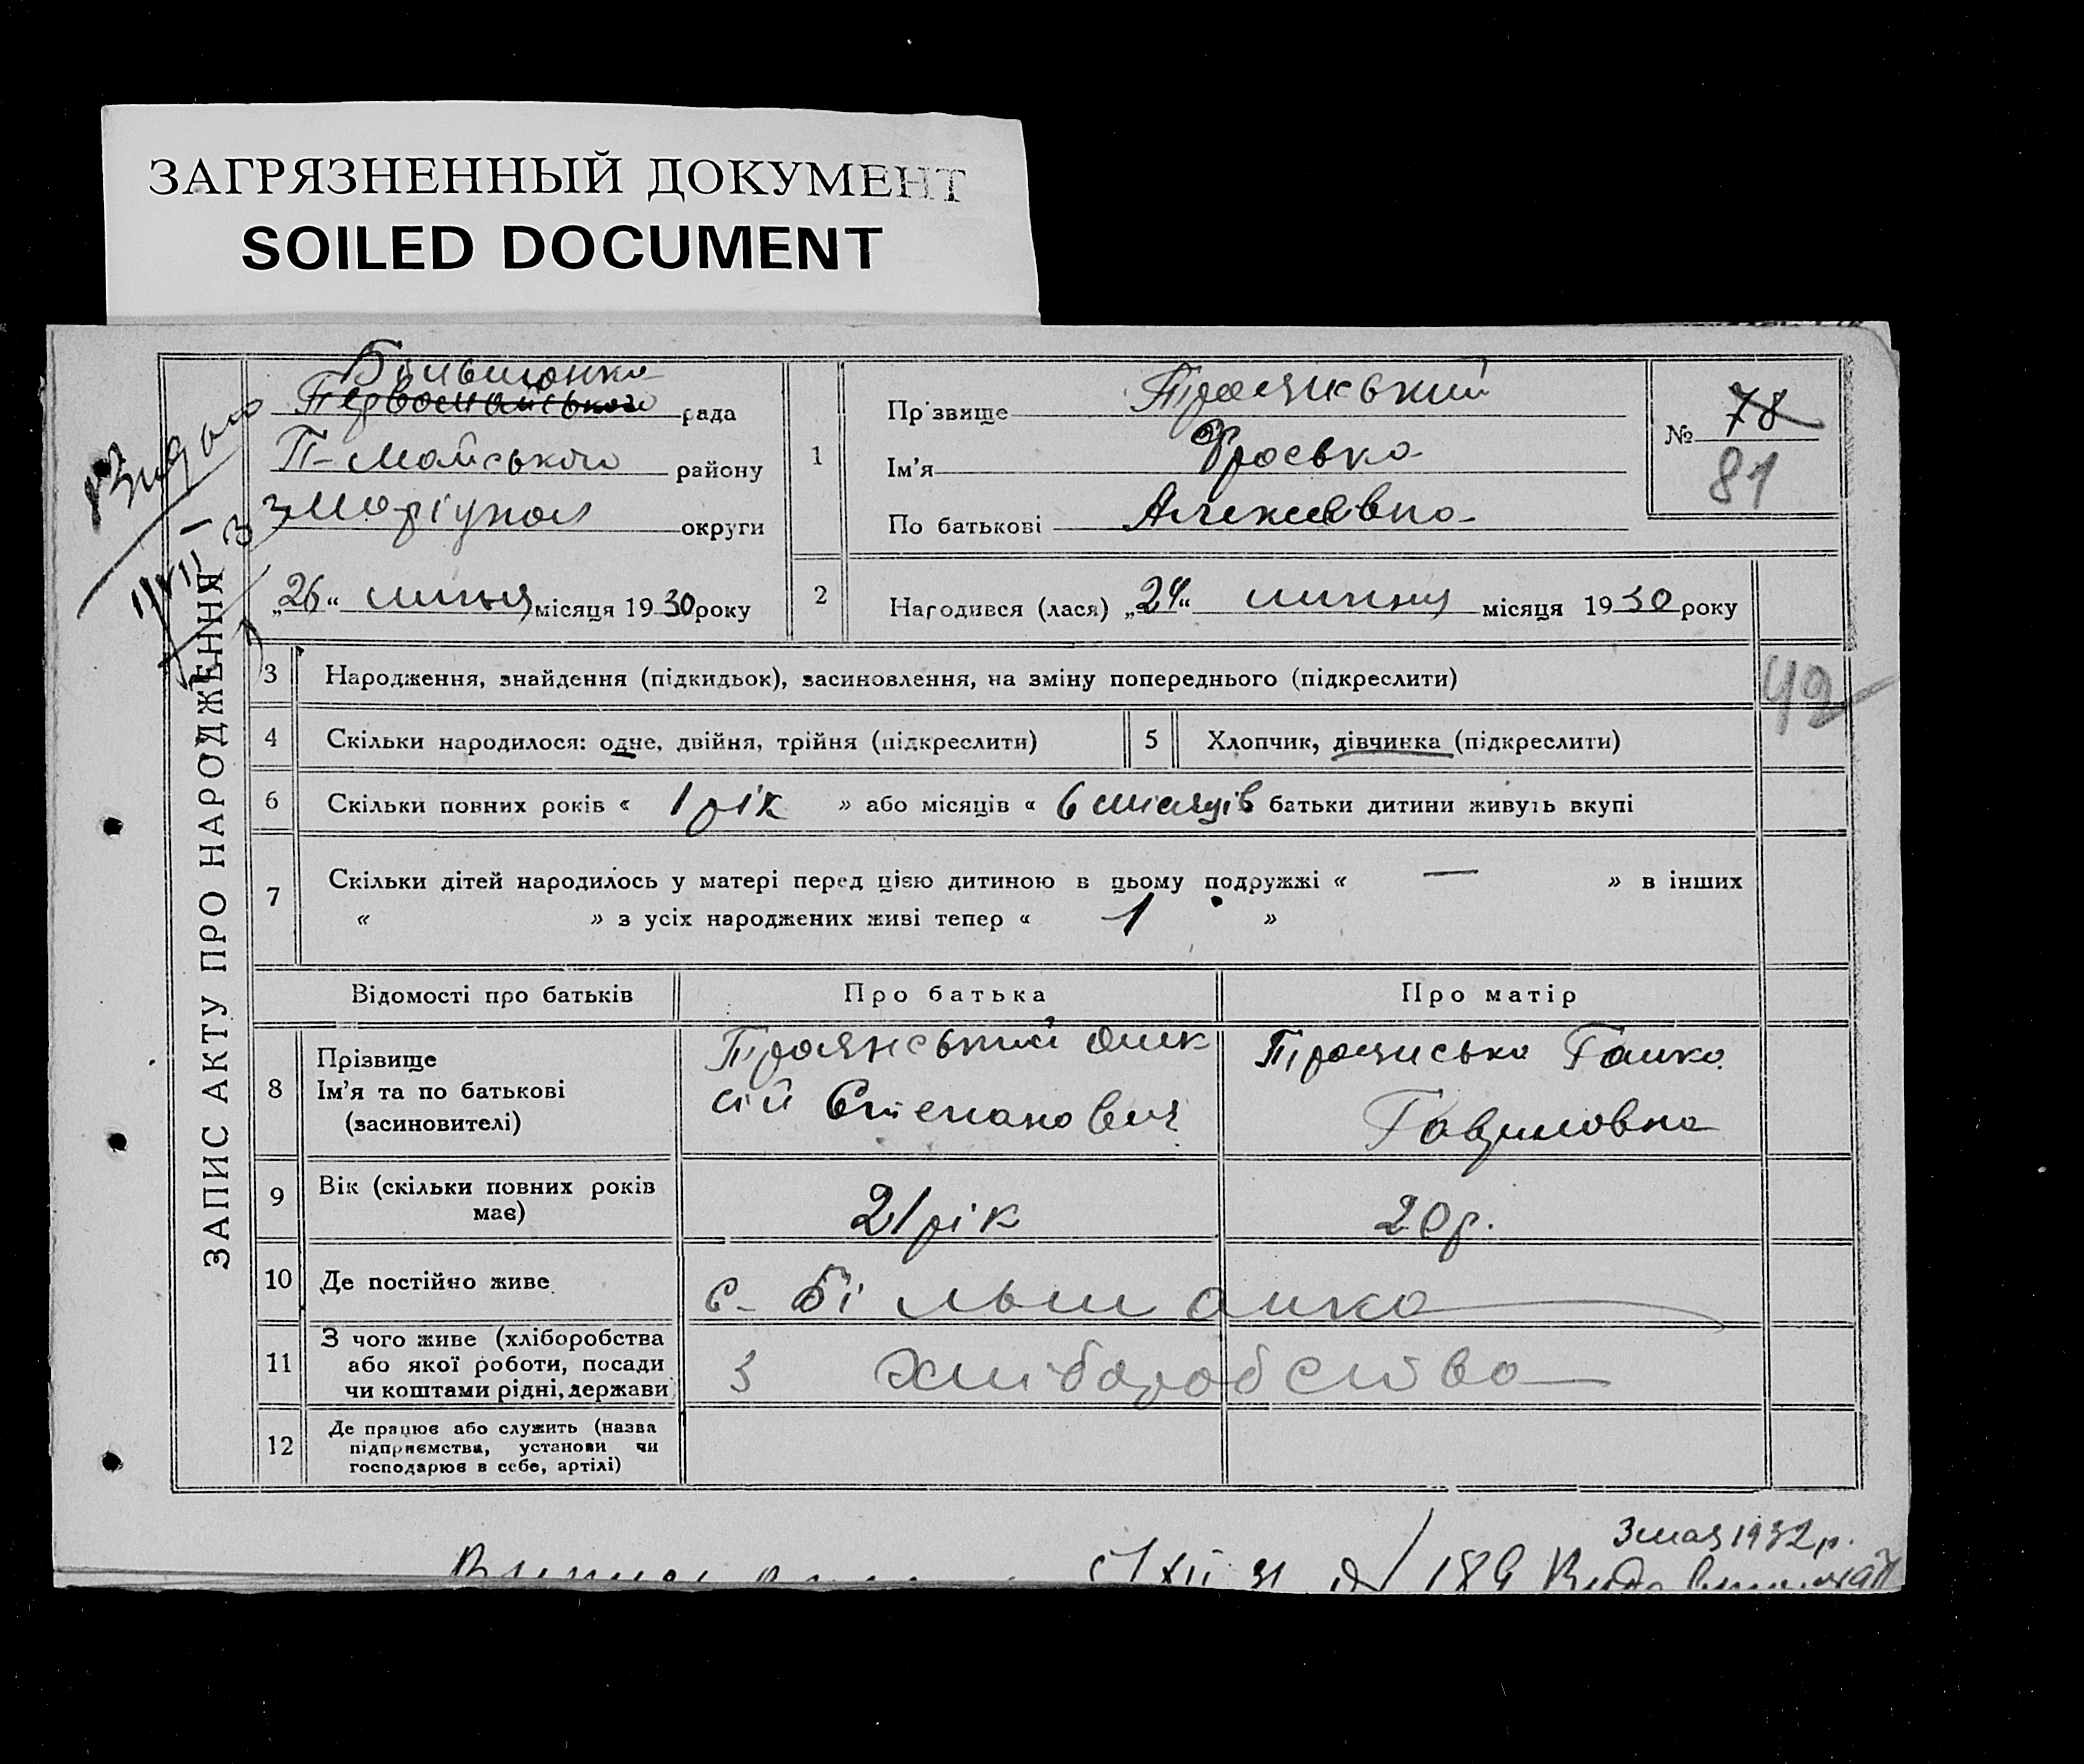 ЗАГРЯЗНЕННЫЙ ДОКУМЕНТ
SOILED DOCUMENT
ЗАПИС АКТУ ПРО НАРОДЖЕННЯ
Більшанка
Первомайського рада
П-майського району
Маріупол округи
„26“ липня місяця 1930 року
1
Прізвище Троянський
Ім’я Фроська
По батькові Алексеевна
№ 78
81
2
Народився (лася) „24“ липня місяця 1930 року
3 Народження, знайдення (підкидьок), засиновлення, на зміну попереднього (підкреслити)
42
4 Скільки народилося: одне, двійня, трійня (підкреслити) 5 Хлопчик, дівчинка (підкреслити)
6 Скільки повних років « 1 рік » або місяців « 6 місяців батьки дитини живуть вкупі
7 Скільки дітей народилось у матері перед цією дитиною в цьому подружжі « — » в інших
« » з усіх народжених живі тепер « 1 »
Відомості про батьків Про батька Про матір
8 Прізвище
Ім’я та по батькові
(засиновителі)
Троянський Олек
сій Степанович
Троянська Ганка
Гавриловна
9 Вік (скільки повних років
має)
21 рік 20 р.
10 Де постійно живе с. Більшанка
11 З чого живе (хліборобства
або якої роботи, посади
чи коштами рідні, держави
З хліборобства
12 Де працює або служить (назва
підприємства, установи чи
господарює в себе, артілі)
3 мая 1932 р.
XII 31 189